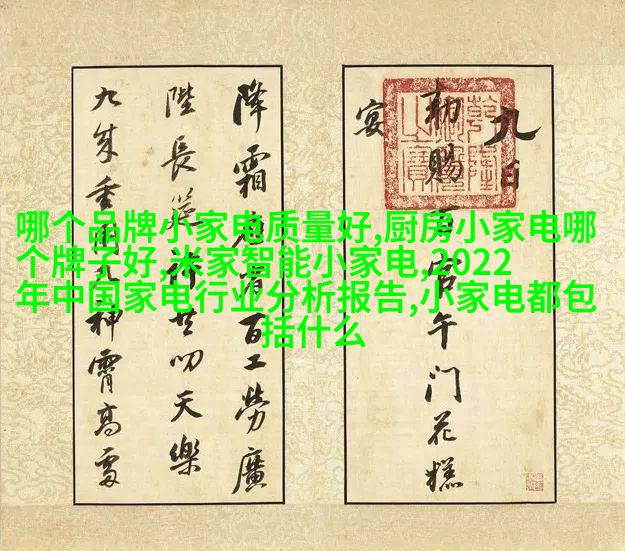 哪个品牌小家电质量好,厨房小家电哪
个牌子好,米家智能小家电,2022
年中国家电行业分析报告,小家电都包
括什么
九日
勑賜官午門花糕
宴
降霜百工勞廣
陛長筵共叨天樂
九成重神霄高
乾隆御覽之寶